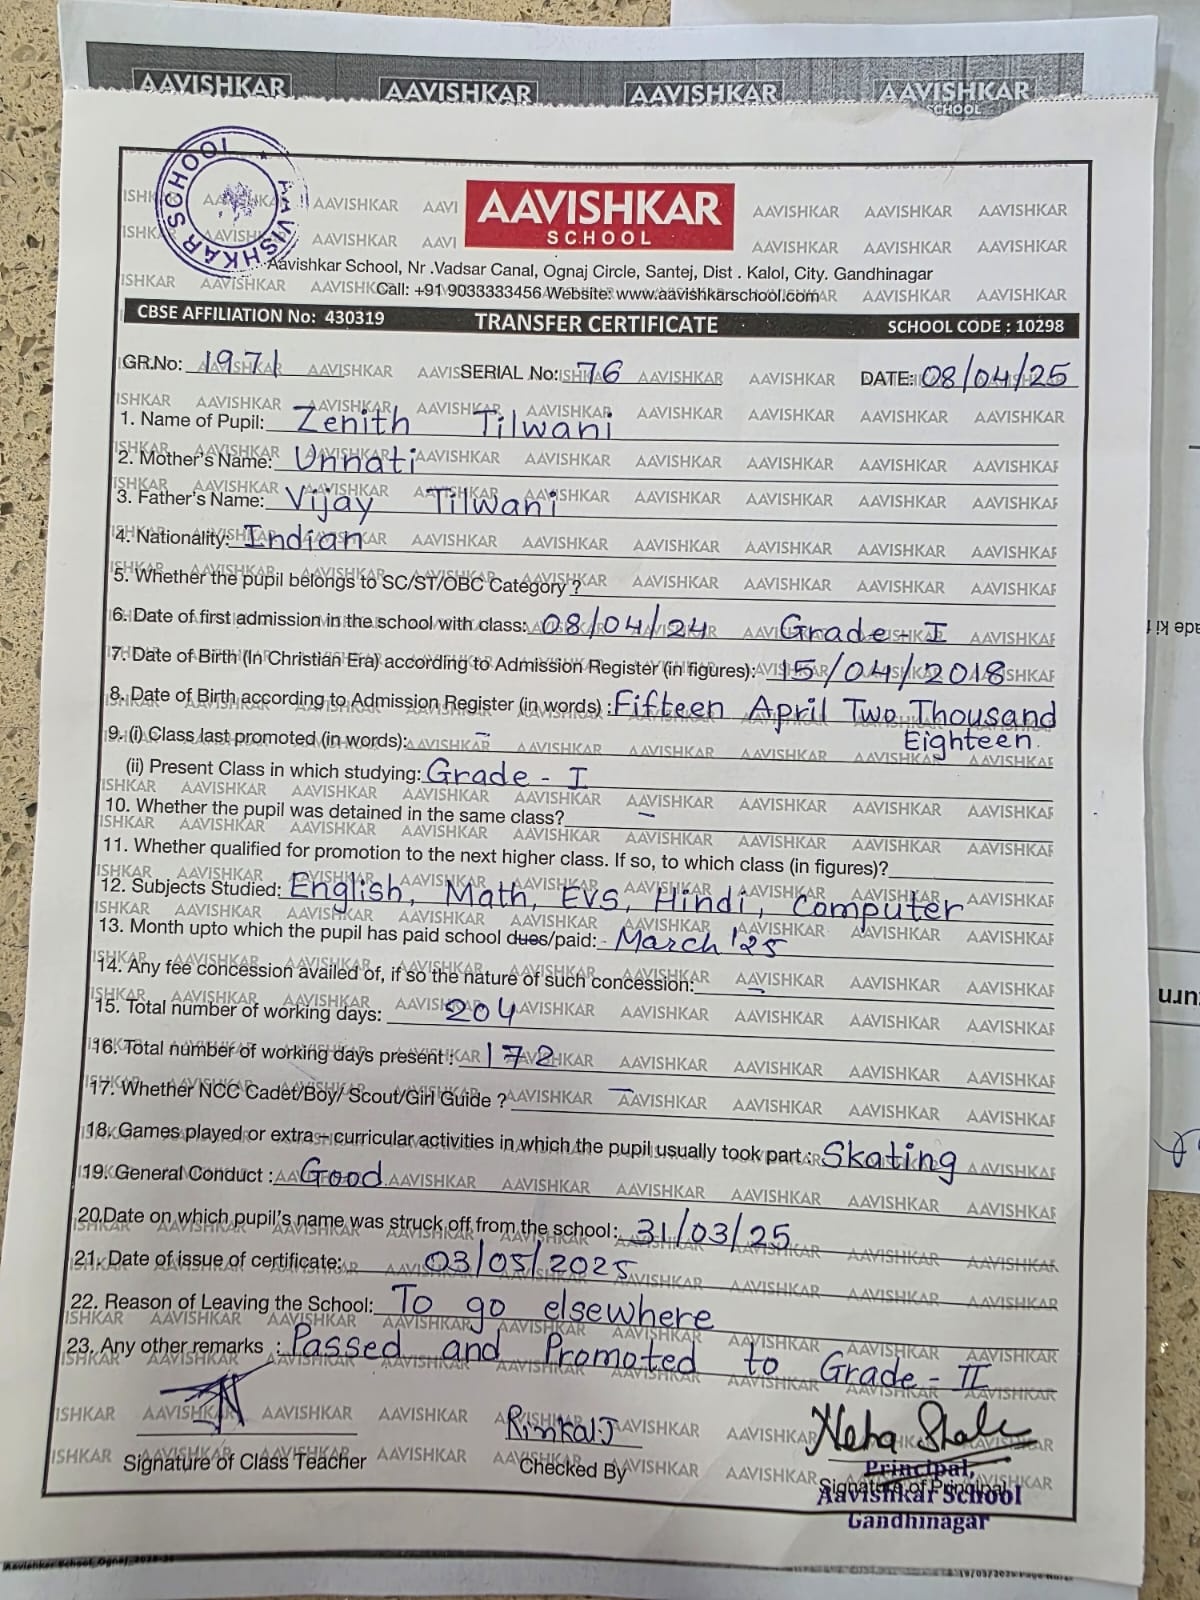 AAVISHKAR AAVISHKAR AAVISHKAR AAVISHKAR
SCHOOL
AAVISHKAR SCHOOL
AAVISHKAR
SCHOOL
Aavishkar School, Nr .Vadsar Canal, Ognaj Circle, Santej, Dist . Kalol, City. Gandhinagar
Call: +91 9033333456 Website: www.aavishkarschool.com
CBSE AFFILIATION No: 430319 TRANSFER CERTIFICATE SCHOOL CODE : 10298
GR.No: 1971 SERIAL No: 76 DATE: 08/04/25
1. Name of Pupil: Zenith Tilwani
2. Mother's Name: Unnati
3. Father's Name: Vijay Tilwani
4. Nationality: Indian
5. Whether the pupil belongs to SC/ST/OBC Category ?
6. Date of first admission in the school with class: 08/04/24 Grade - I
7. Date of Birth (In Christian Era) according to Admission Register (in figures): 15/04/2018
8. Date of Birth according to Admission Register (in words) : Fifteen April Two Thousand
Eighteen.
9. (i) Class last promoted (in words): -
(ii) Present Class in which studying: Grade - I
10. Whether the pupil was detained in the same class? -
11. Whether qualified for promotion to the next higher class. If so, to which class (in figures)?
12. Subjects Studied: English, Math, EVS, Hindi, Computer
13. Month upto which the pupil has paid school dues/paid: March '25
14. Any fee concession availed of, if so the nature of such concession: -
15. Total number of working days: 204
16. Total number of working days present : 172
17. Whether NCC Cadet/Boy/ Scout/Girl Guide ? -
18. Games played or extra – curricular activities in which the pupil usually took part : Skating
19. General Conduct : Good
20.Date on which pupil's name was struck off from the school: 31/03/25
21. Date of issue of certificate: 03/05/2025
22. Reason of Leaving the School: To go elsewhere
23. Any other remarks : Passed and Promoted to Grade - II
Rinkal.J Neha Shah
Signature of Class Teacher Checked By Signature of Principal
Principal,
Aavishkar School
Gandhinagar